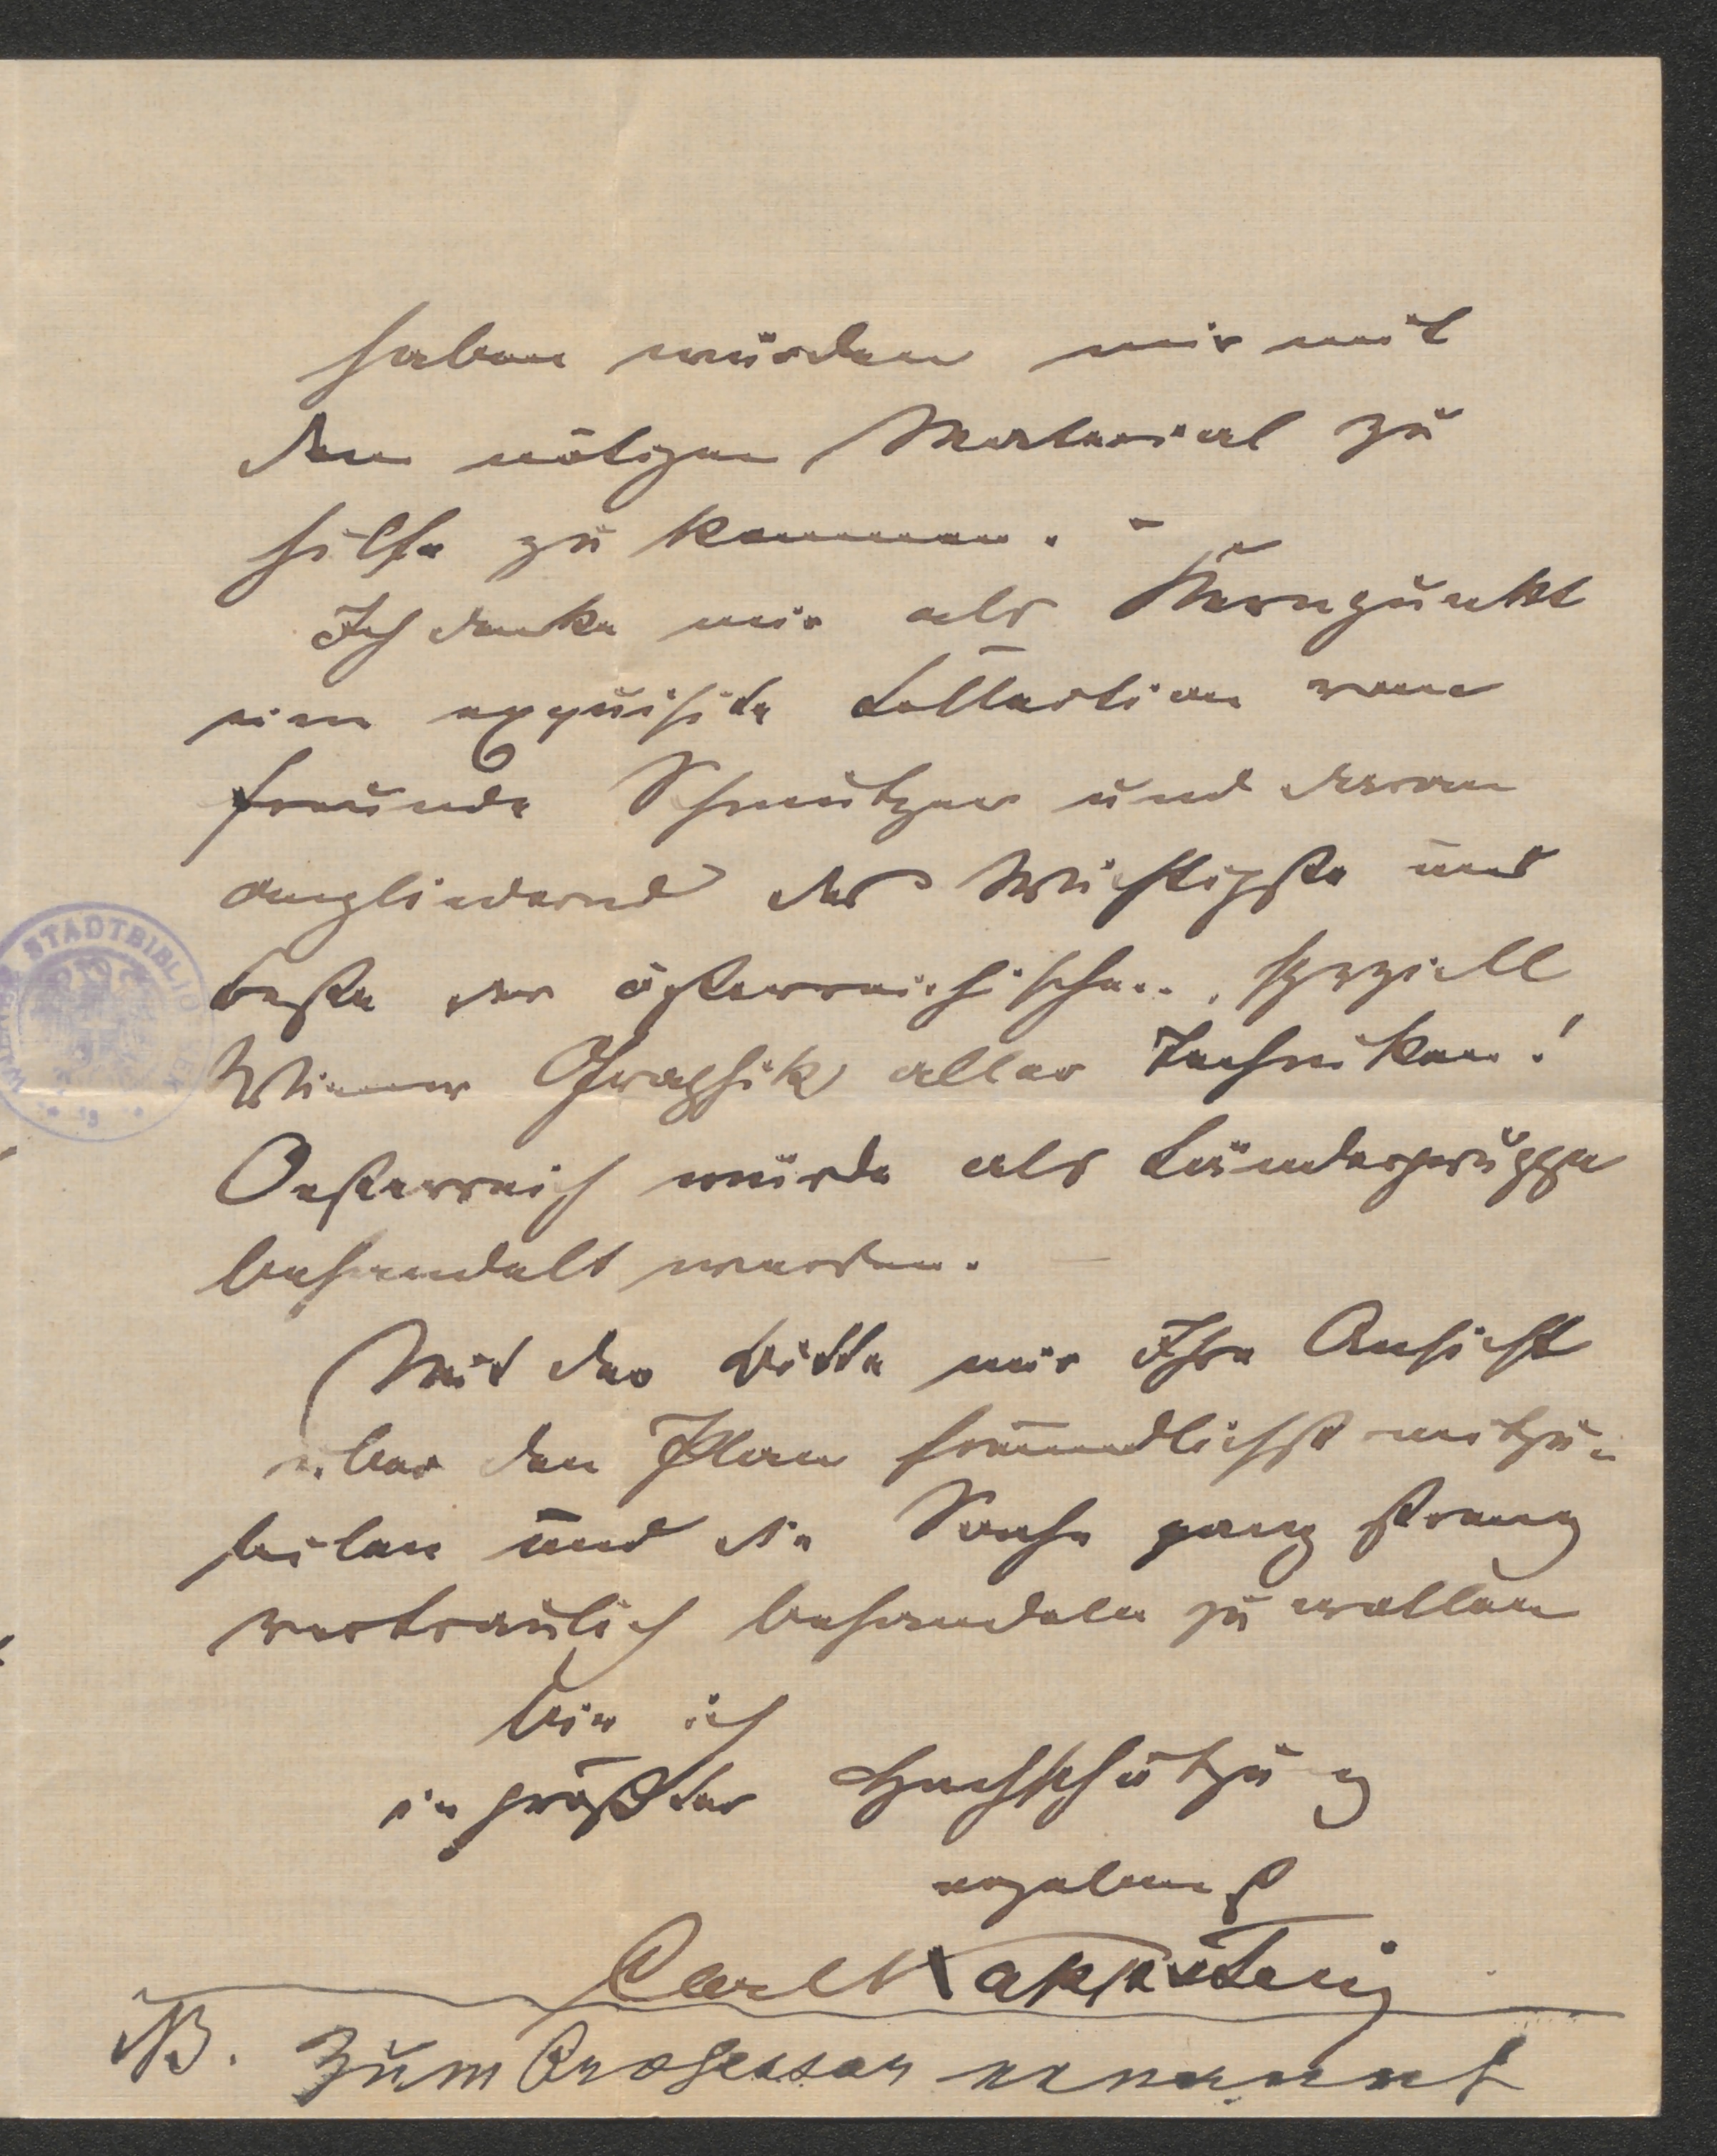 haben würden mir mit
dem nötigen Material zu
hilfe zu kommen. –
Ich denke mir als Kernpunkt
eine exquisite Collection von
freunde Schmutzer und daran
angliedernd das Wichtigste und
beste der österreichischen, speziell
Wiener Graphik aller Techniken!
Oesterreich würde als Ländergruppe
behandelt werden. —
Mit der bitte mir Ihre Ansicht
über den Plan freundlichst mitzu-
teilen und die Sache ganz streng
vertraulich behandeln zu wollen
bin ich
in größter Hochschätzung
ergebenst
Carl Kappstein
NB. Zum Professor ernannt
WIENER STADTBIBLIOTHEK